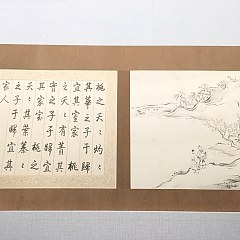 桃之夭〻灼〻
其華之子于歸
宜其室家桃
之夭〻有蕡其
實之子于歸宜
其家室桃之
夭〻其葉蓁〻
之子于歸宜其
家人